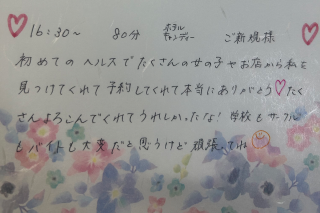 16:30~ 80分 ホテル キャンディー ご新規様
初めてのヘルスでたくさんの女の子やお店から私を
見つけてくれて予約してくれて本当にありがとう♡たく
さんよろこんでくれてうれしかったな!学校もサークル
もバイトも大変だと思うけど頑張ってね